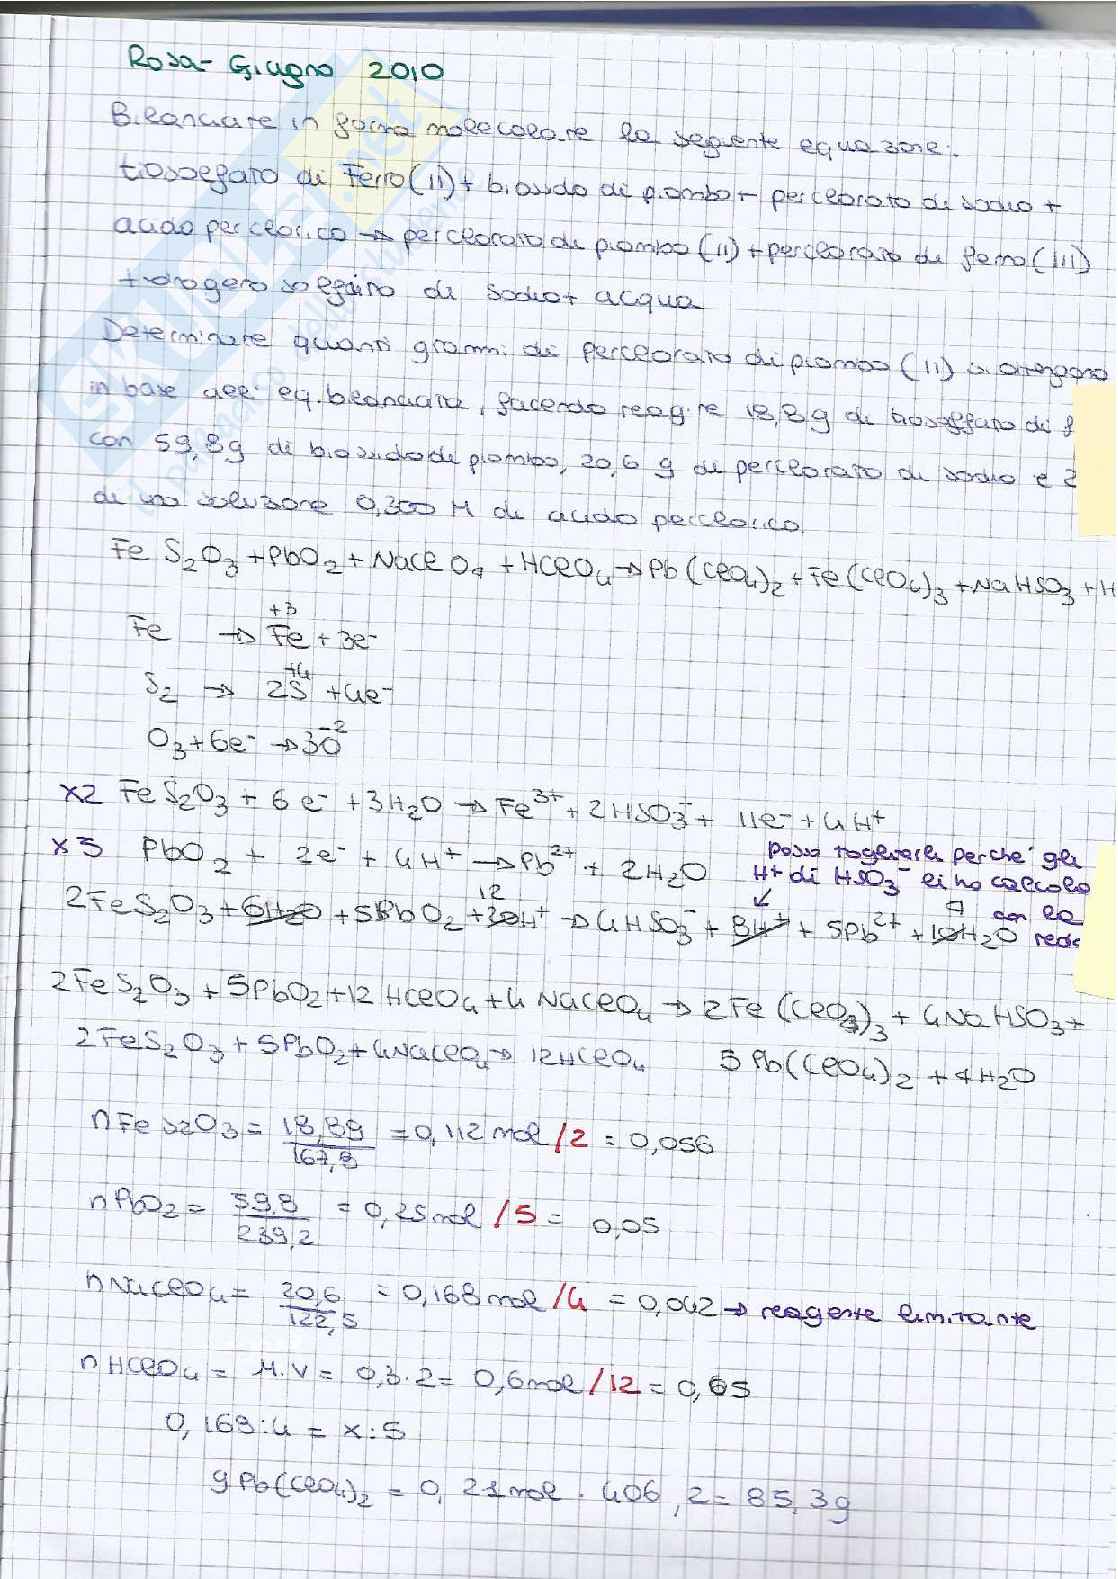 Rosa- Giugno 2010
Bilanciare in forma molecolare la seguente equazione:
tiosolfato di Ferro(II)+ biossido di piombo+ perclorato di sodio +
acido perclorico → perclorato di piombo (II) +perclorato di ferro(III)
+ idrogeno solfito di sodio+ acqua
Determinare quanti grammi di perclorato di piombo (II) si ottengono
in base all' eq. bilanciata, facendo reagire 18,8g di tiosolfato di f
con 59,8g di biossido di piombo, 20,6 g di perclorato di sodio e 2
di una soluzione 0,300 M di acido perclorico.
Fe S₂O₃ +PbO₂ +NaClO₄ +HClO₄ → Pb(ClO₄)₂ +Fe(ClO₄)₃ +NaHSO₃ +H
Fe → Fe⁺³ + 3e⁻
S₂ → 2S⁺⁴ +4e⁻
O₃+6e⁻ → 3O⁻²
x2 FeS₂O₃ + 6e⁻ +3H₂O → Fe³⁺ + 2HSO₃⁻ + 11e⁻ + 4H⁺
x5 PbO₂ + 2e⁻ + 4H⁺ → Pb²⁺ + 2H₂O
posso toglierli perche' gli
H⁺ di HSO₃⁻ li ho calcolo
con la
redox
2FeS₂O₃ + 6H₂O + 5PbO₂ + 20H⁺ → 4HSO₃⁻ + 8H⁺ + 5Pb²⁺ + 10H₂O
12
4
2FeS₂O₃ +5PbO₂+12HClO₄+4NaClO₄ → 2Fe(ClO₄)₃ + 4NaHSO₃+
2FeS₂O₃ +5PbO₂+4NaClO₄ → 12HClO₄ 5Pb(ClO₄)₂ + 4H₂O
nFeS₂O₃ = 18,8g/167,8 = 0,112mol /2 = 0,056
nPbO₂ = 59,8/239,2 = 0,25mol /5 = 0,05
nNaClO₄ = 20,6/122,5 = 0,168mol /4 = 0,042 → reagente limitante
nHClO₄ = M.V = 0,3.2 = 0,6mol /12 = 0,05
0,168:4 = x:5
gPb(ClO₄)₂ = 0,21mol . 406,2 = 85,3g